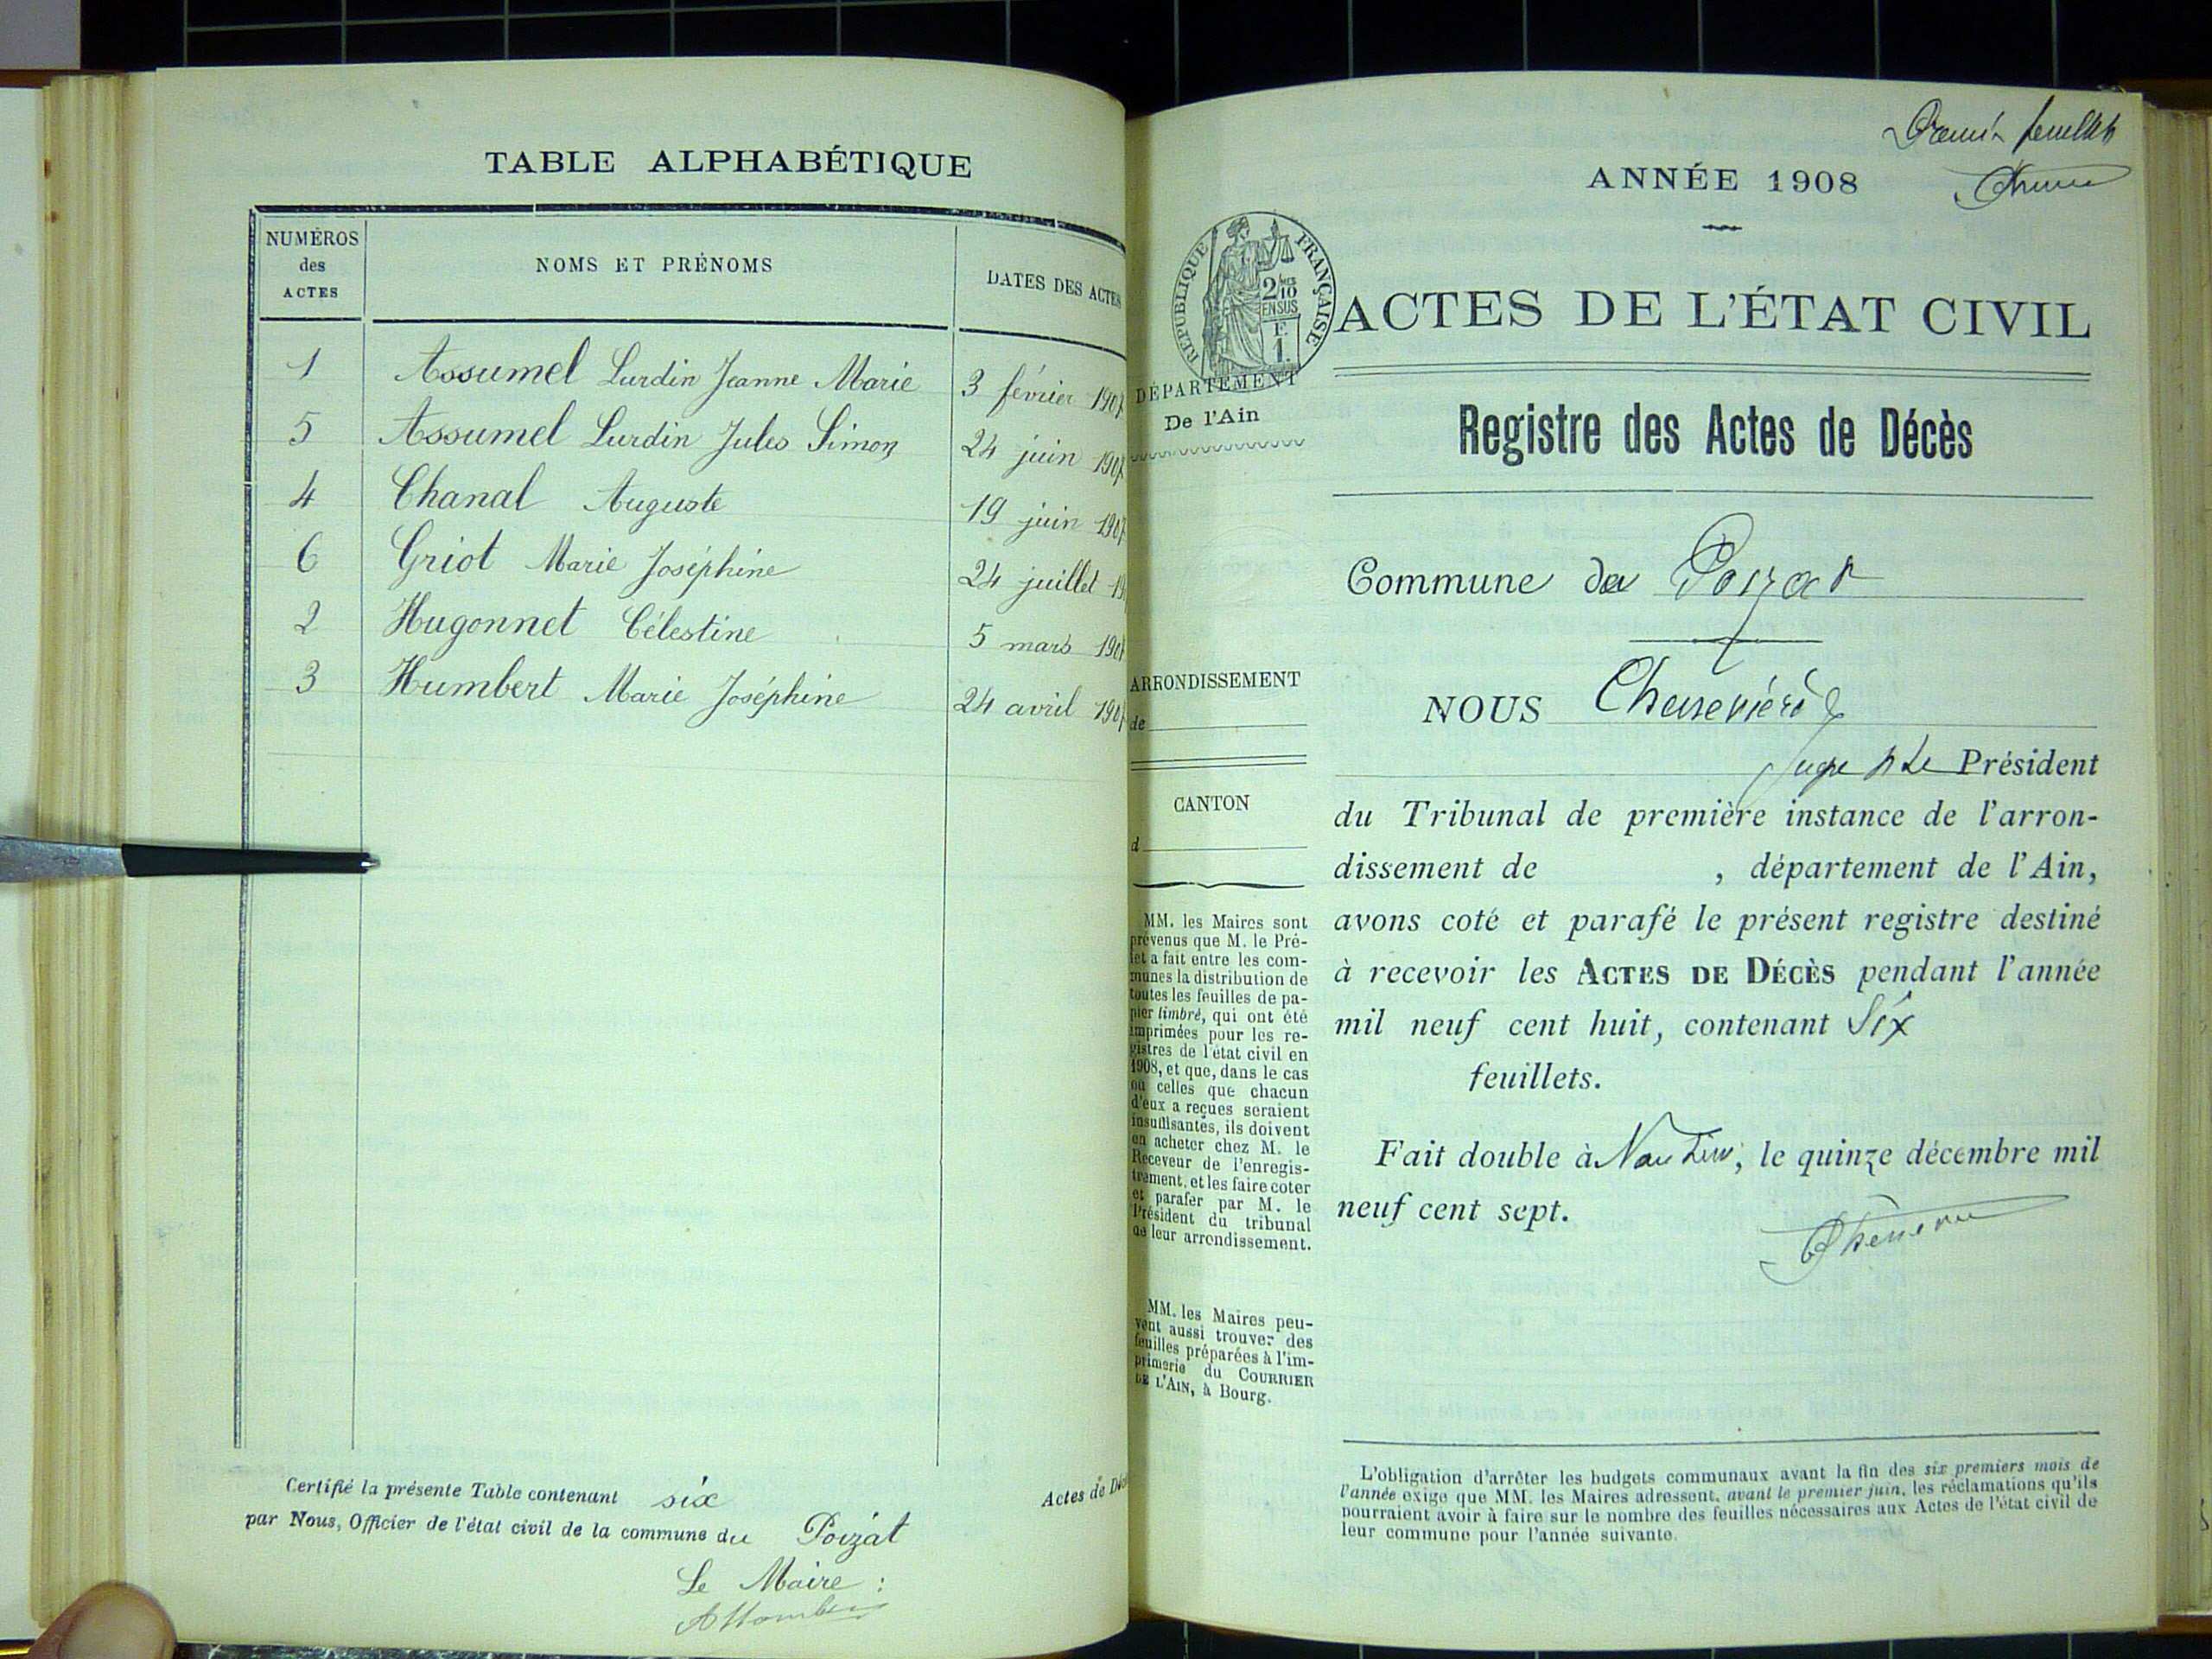 TABLE ALPHABÉTIQUE
NUMÉROS
des
ACTES
NOMS ET PRÉNOMS
DATES DES ACTES
1 Assumel Lurdin Jeanne Marie 3 février 1907
5 Assumel Lurdin Jules Simon 24 juin 1907
4 Chanal Auguste 19 juin 1907
6 Griot Marie Joséphine 24 juillet 19
2 Hugonnet Célestine 5 mars 190
3 Humbert Marie Joséphine 24 avril 190
Certifié la présente Table contenant six Actes de Déc
par Nous, Officier de l'état civil de la commune du Poizat
Le Maire :
feuillet
ANNÉE 1908
RÉPUBLIQUE FRANÇAISE
2/10
EN SUS
F
1.
ACTES DE L'ÉTAT CIVIL
DÉPARTEMENT
De l'Ain
Registre des Actes de Décès
Commune du Poizat
ARRONDISSEMENT
de
CANTON
d
MM. les Maires sont
prévenus que M. le Pré-
fet a fait entre les com-
munes la distribution de
toutes les feuilles de pa-
pier timbré, qui ont été
imprimées pour les re-
gistres de l'état civil en
1908, et que, dans le cas
où celles que chacun
d'eux a reçues seraient
insuffisantes, ils doivent
en acheter chez M. le
Receveur de l'enregis-
trement, et les faire coter
et parafer par M. le
Président du tribunal
de leur arrondissement.
MM. les Maires peu-
vent aussi trouver des
feuilles préparées à l'im-
primerie du COURRIER
DE L'AIN, à Bourg.
NOUS
Juge Président
du Tribunal de première instance de l'arron-
dissement de , département de l'Ain,
avons coté et parafé le présent registre destiné
à recevoir les ACTES DE DÉCÈS pendant l'année
mil neuf cent huit, contenant Six
feuillets.
Fait double à Nantua, le quinze décembre mil
neuf cent sept.
L'obligation d'arrêter les budgets communaux avant la fin des six premiers mois de
l'année exige que MM. les Maires adressent, avant le premier juin, les réclamations qu'ils
pourraient avoir à faire sur le nombre des feuilles nécessaires aux Actes de l'état civil de
leur commune pour l'année suivante.